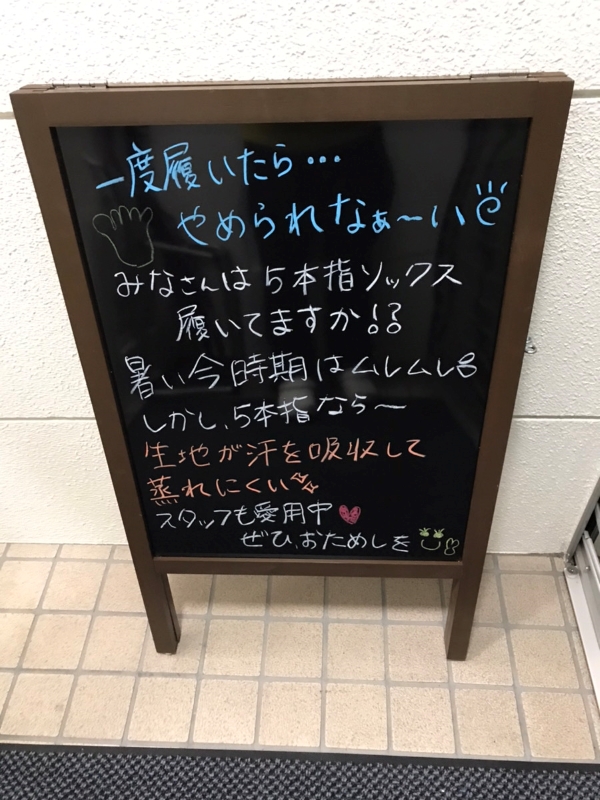 一度履いたら…
やめられなぁ〜い
みなさんは5本指ソックス
履いてますか!?
暑い今時期はムレムレ
しかし、5本指なら〜
生地が汗を吸収して
蒸れにくい
スタッフも愛用中
ぜひ、おためしを